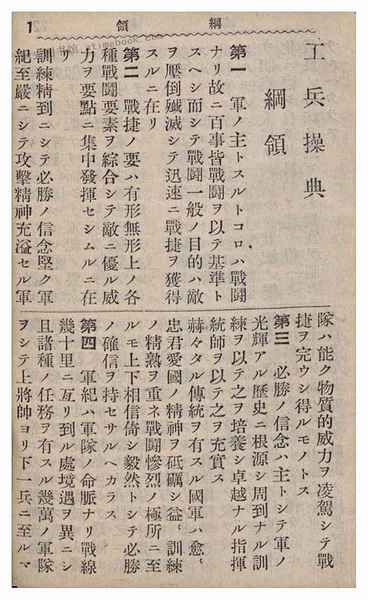 綱領 1
工兵操典
綱領
第一 軍ノ主トスルトコロハ戰鬪
ナリ故ニ百事皆戰鬪ヲ以テ基準ト
スヘシ而シテ戰鬪一般ノ目的ハ敵
ヲ壓倒殲滅シテ迅速ニ戰捷ヲ獲得
スルニ在リ
第二 戰捷ノ要ハ有形無形上ノ各
種戰鬪要素ヲ綜合シテ敵ニ優ル威
力ヲ要點ニ集中發揮セシムルニ在
リ
訓練精到ニシテ必勝ノ信念堅ク軍
紀至嚴ニシテ攻擊精神充溢セル軍
隊ハ能ク物質的威力ヲ凌駕シテ戰
捷ヲ完ウシ得ルモノトス
第三 必勝ノ信念ハ主トシテ軍ノ
光輝アル歷史ニ根源シ周到ナル訓
練ヲ以テ之ヲ培養シ卓越ナル指揮
統帥ヲ以テ之ヲ充實ス
赫々タル傳統ヲ有スル國軍ハ愈〻
忠君愛國ノ精神ヲ砥礪シ益〻訓練
ノ精熟ヲ重ネ戰鬪慘烈ノ極所ニ至
ルモ上下相信倚シ毅然トシテ必勝
ノ確信ヲ持セサルヘカラス
第四 軍紀ハ軍隊ノ命脈ナリ戰線
幾十里ニ亙リ到ル處境遇ヲ異ニシ
且諸種ノ任務ヲ有スル幾萬ノ軍隊
ヲシテ上將帥ヨリ下一兵ニ至ルマ